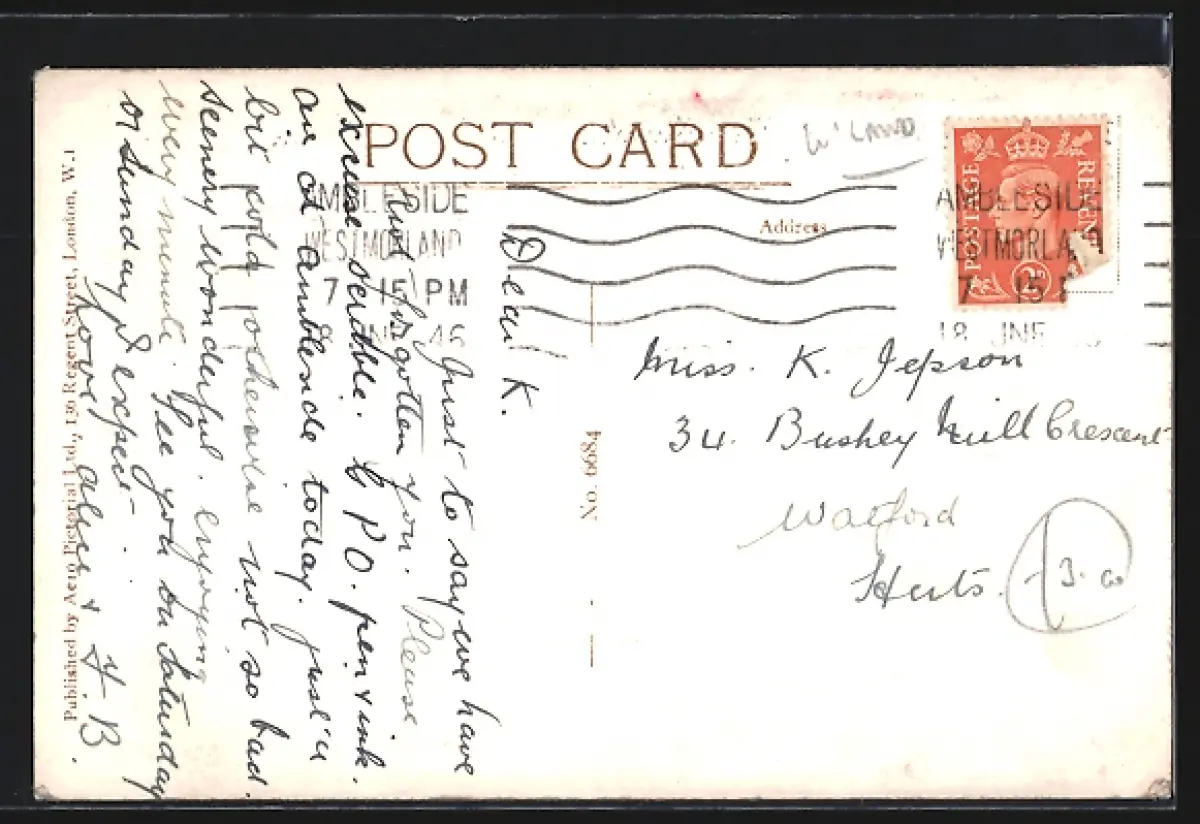 POST CARD
W'LAND
Address
POSTAGE
REVENUE
2D
AMBLESIDE
WESTMORLAND
7 15 PM
18 JNE 46
AMBLESIDE
WESTMORLAND
7 15 P
18 JNE
Miss. K. Jepson
34. Bushey Mill Crescent
Watford
Herts.
No. 69884
Dear K.
Just to say we have
not forgotten you. Please.
excuse scribble. G P O. pen & ink.
are at Ambleside today. just a
bit cold otherwise not so bad.
Scenery wonderful. enjoying
every minute. See you on Saturday
or Sunday I expect.
Love & H. B.
Published by Aero Pictorial Ltd., 136 Regent Street, London, W.1